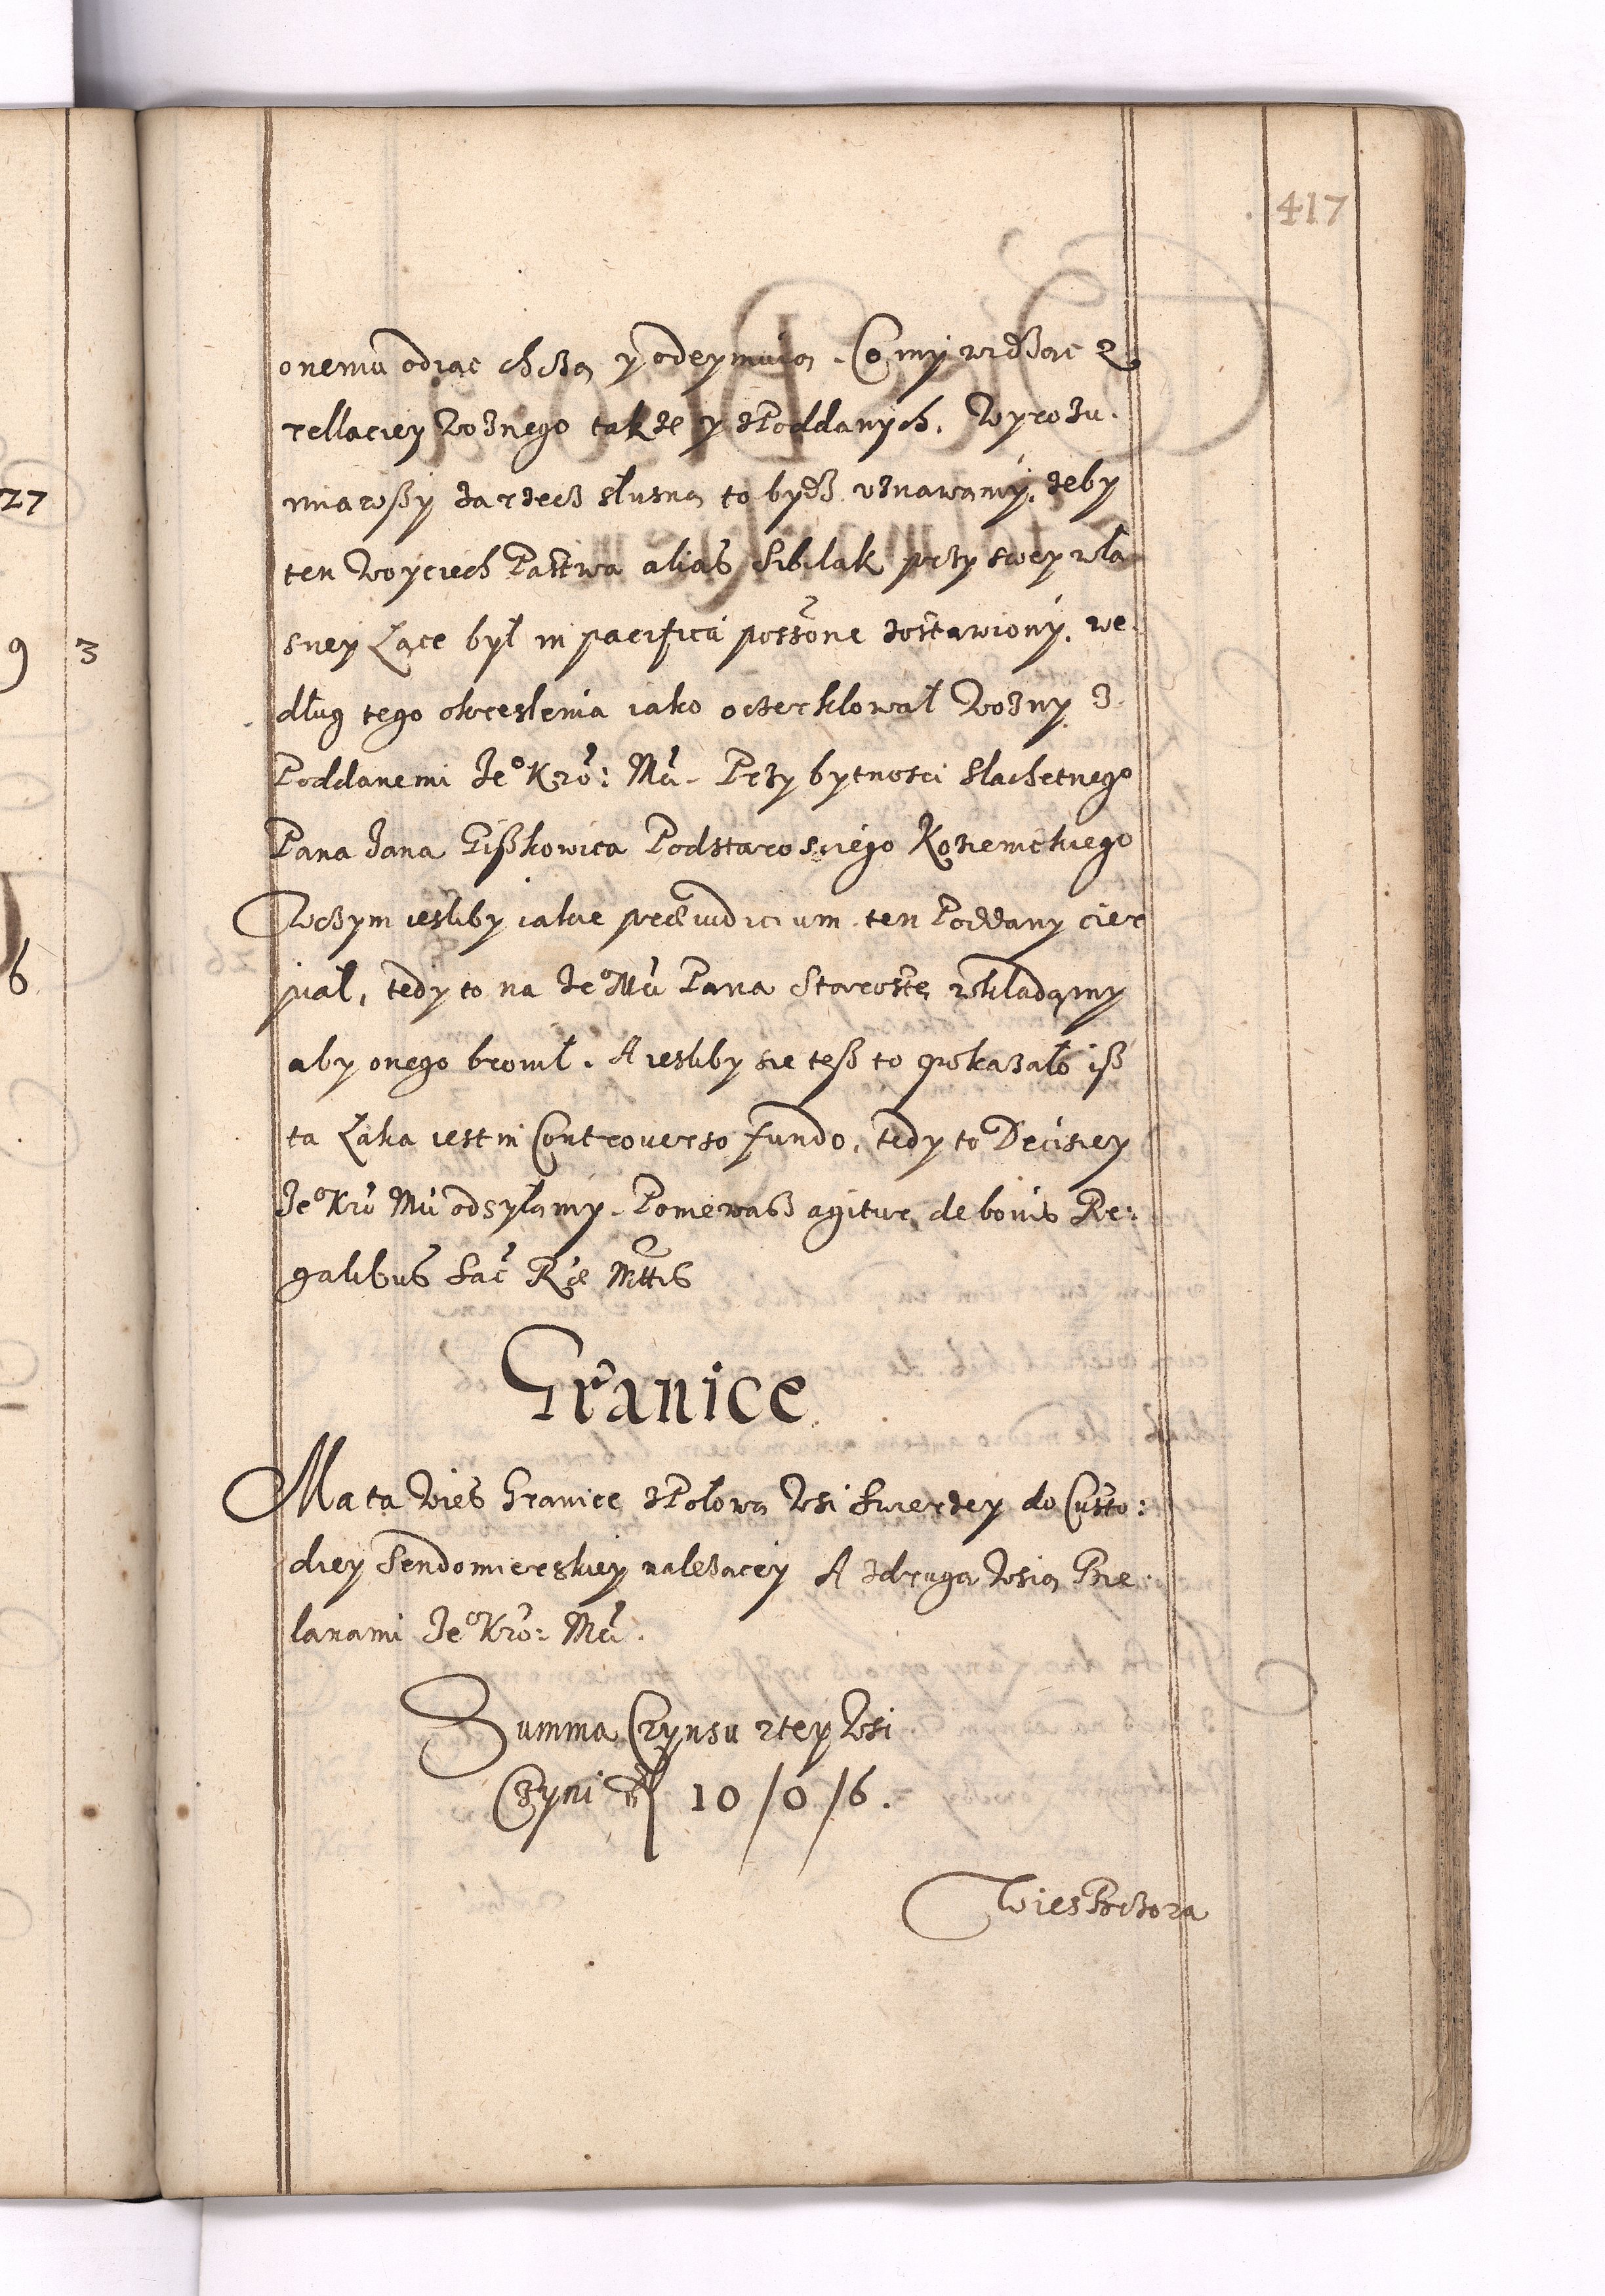 417
onemu odiąc chczą y odeymuią. Co my widząc z
rellaciey Woznego takze y z Poddanych. Wyrozu-
miawszy za rzecz slusną to bydz uznawamy, zeby
ten Woyciech Pastwa alias Sibilak przy swey wła
sney Łące był in pacifica possone zostawiony. We-
dług tego okreslenia iako ocierklował Wozny z
Poddanemi Je° Kro: Mci. Przy bytnosci Slachetnego
Pana Jana Giszkowica Podstarosciego Kozienickiego
W czym iesliby iakie præiudicium ten Poddany cier
piał, tedy to na Je° Mci Pana Starostę wkładamy
aby onego bronił. A iesliby sie tesz to pokazało isz
ta Łaka iest in Controverso fundo, tedy to Decisiey
Je° Kro Mci odsyłamy. Poniewasz agitur de bonis Re:
galibus Sac Rgæ Mttis
Granice
Ma ta Wies Granice z Połową Wsi Swierzey do Custo:
diey Sendomierskiey nalezącey A z drugą Wsią Bie-
lanami Je° Kro: Mci.
Summa Czynsu z tey Wsi
Czyni fl 10/0/6.
Wies Brzoza
27
9 3
6